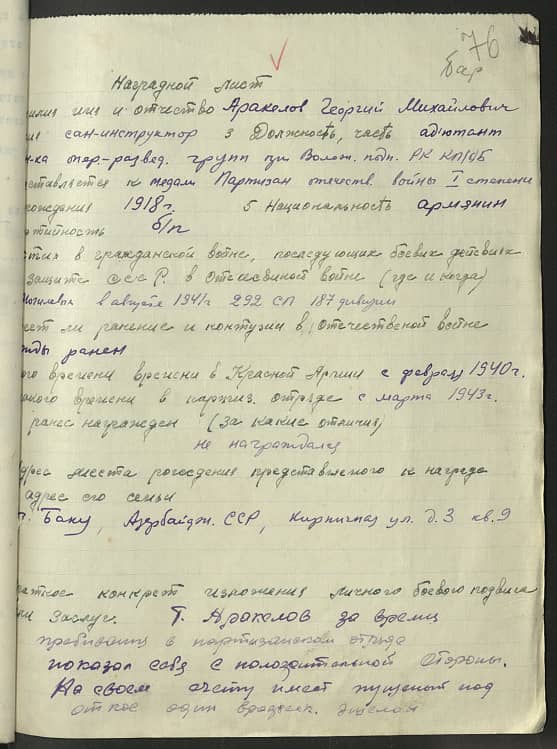 76
Бар
Наградной лист
милия имя и отчество Аракелов Георгий Михайлович
ие сан-инструктор 3 Должность, часть адютант
н-ка опер-развед. групп при Волож. подп. РК КП(б)Б
ставляется к медали Партизан отечеств. войны I степени
рождения 1918 г. 5 Национальность армянин
ртийность б/п
стия в гражданской войне, последующих боевых действиях
защите СССР. в Отечествиной войне (где и когда)
Могилевы в августе 1941 г 292 СП 187 дивизии
еет ли ранение и контузии в Отечествеской войне
жды ранен
ого времени времени в Красной Армии с февраля 1940 г.
акого времени в партиз. отряде с марта 1943 г.
ранее награжден (За какие отличия)
не награждался
дрес места рогоедения представленого к награде
адрес его семьи
г. Баку, Азербайдж. ССР, Кирпичная ул. д. 3 кв. 9
раткое конкрет изложения личного боевого подвига
ли Заслуг. Т. Аракелов за время
пребывания в партизанском отряде
показал себя с положительной стороны.
На своем счету имеет пущеный под
откос один вражеск. эшелон